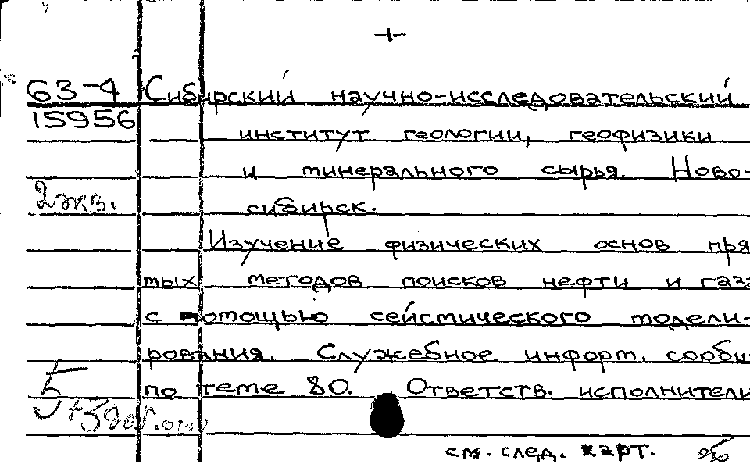 63-4 Сибирский научно-исследовательский
15956 институт геологии, геофизики
и минерального сырья. Ново-
2экз. сибирск.
Изучение физических основ пря
мых методов поисков нефти и газа
с помощью сейсмического модели-
рования. Служебное информ. сообщ
5 по теме 80. Ответств. исполнители
см. след. карт.